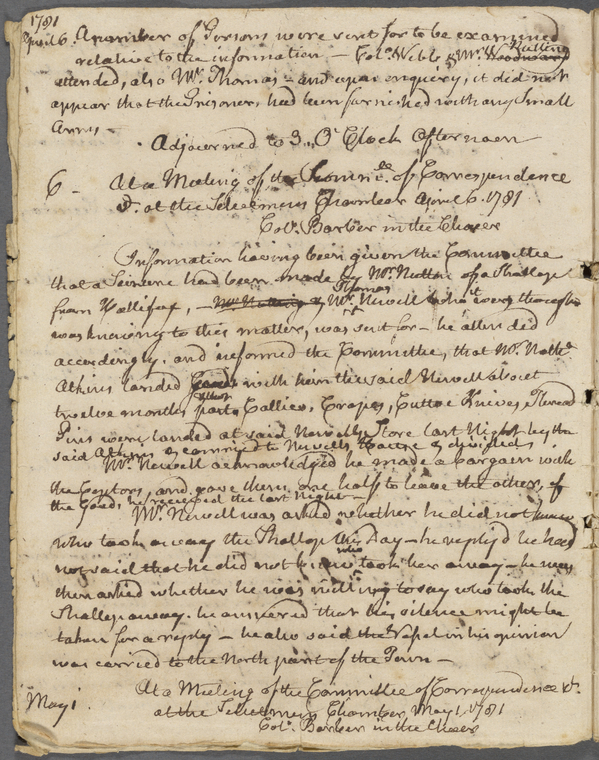 1781
April 6. A number of Persons were sent for to be examined
relative to the information — Colo. Webb & Mr. Woodward Rutting
attended, also Mr. Thomas — and upon enquiry, it did not
appear that the Prisoners had been furnished with any Small
Arms —
Adjourned to 3, O'Clock Afternoon
6 — At a Meeting of the Committee of Correspondence
&c. at the Selectmens Chamber April 6. 1781
Colo. Barber in the Chair
Information having been given the Committee
that a Seizure had been made by Mr. of a Shallop
from Hallifax, — Mr. & Thomas Mr. Newell who it was thought
was knowing to this matter, was sent for — he attended
accordingly, and informed the Committee, that Mr. Nathl.
Atkins landed Goods with him the said Newell about
twelve months past, Callico, Crapes, Cuttoe Knives, Thread
Pins were landed at said Newells Store last Night by the
said Atkins & carried to Newells House & divided
Mr. Newell acknowledged he made a bargain with
the Captors, and gave them one half to leave the other, of
the Goods, he received the last Night —
Mr. Newell was asked whether he did not know
who took away the Shallop this Day — he reply'd he had
not said that he did not know who took her away — he was
then asked whether he was willing to say who took the
Shallop away. he answered that his silence might be
taken for a reply — he also said the Vessel in his opinion
was carried to the North part of the Town —
May 1. At a Meeting of the Committee of Correspondence &c.
at the Selectmens Chamber May 1, 1781
Colo. Barber in the Chair